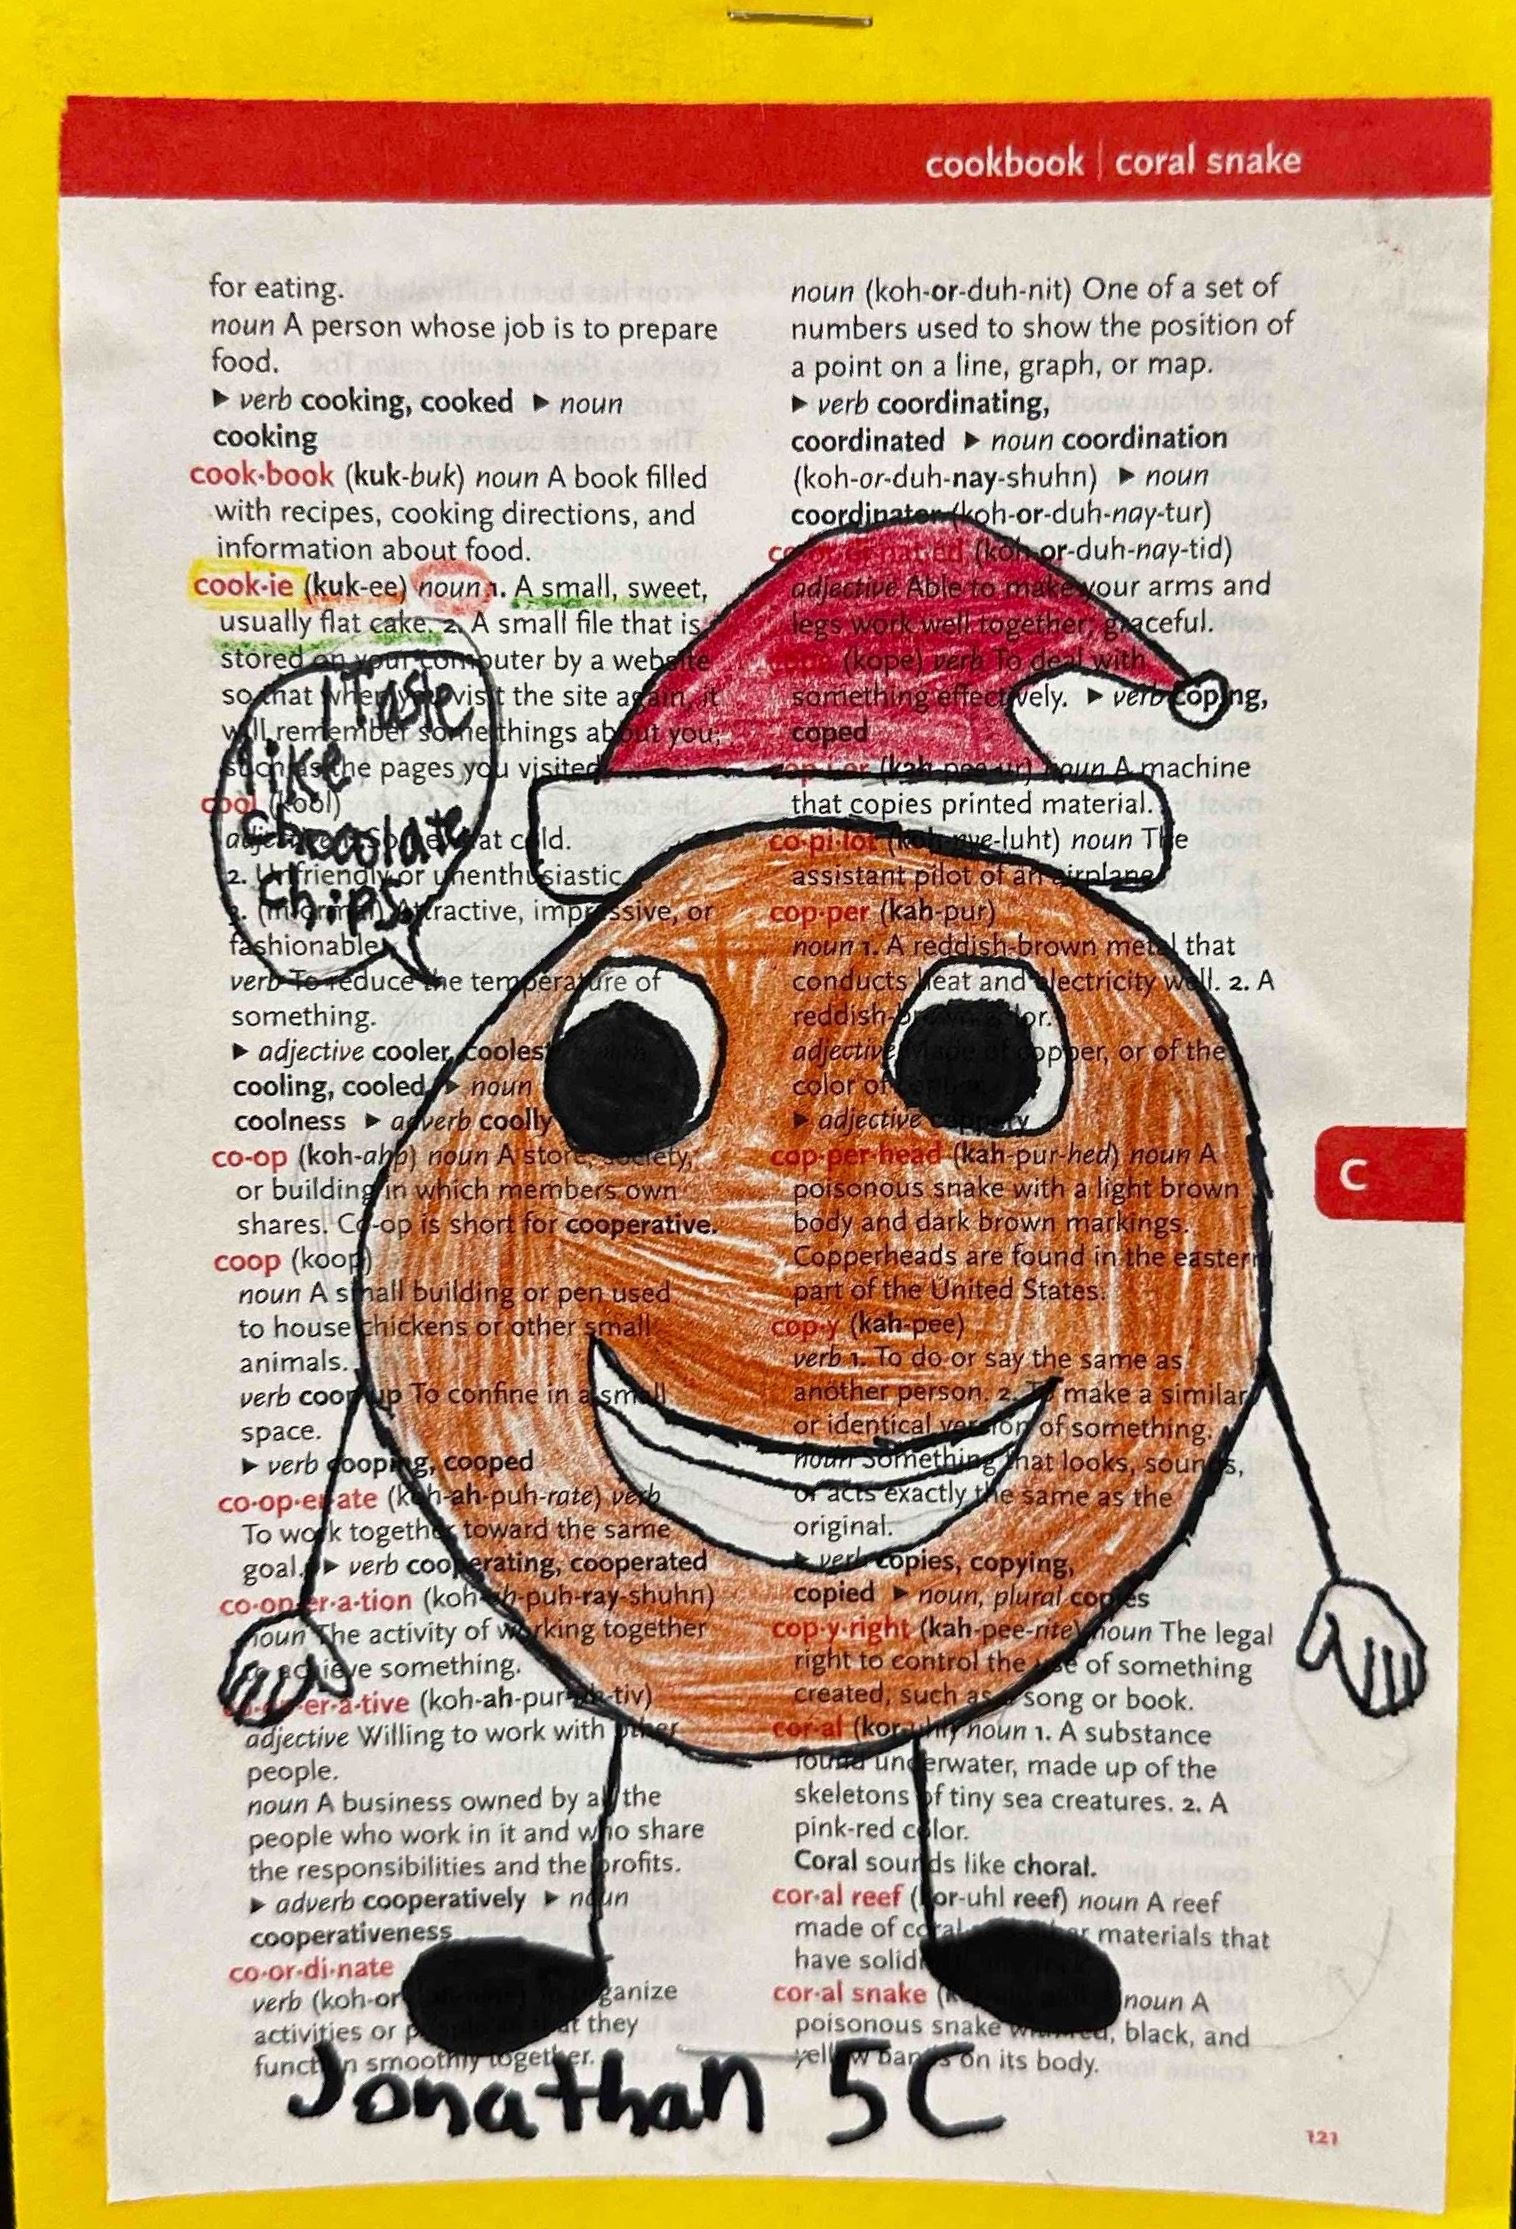 cookbook | coral snake
for eating.
noun A person whose job is to prepare
food.
▶ verb cooking, cooked ▶ noun
cooking
cook·book (kuk-buk) noun A book filled
with recipes, cooking directions, and
information about food.
cook·ie (kuk-ee) noun 1. A small, sweet,
usually flat cake. 2. A small file that is
stored on your computer by a website
so that when you visit the site again, it
will remember some things about you,
such as the pages you visited
I Taste
like
chocolate
chips
cool (kool)
adjective 1. Somewhat cold.
2. Unfriendly or unenthusiastic
3. (informal) Attractive, impressive, or
fashionable
verb To reduce the temperature of
something.
▶ adjective cooler, coolest
cooling, cooled ▶ noun
coolness ▶ adverb coolly
co-op (koh-ahp) noun A store, society,
or building in which members own
shares. Co-op is short for cooperative.
coop (koop)
noun A small building or pen used
to house chickens or other small
animals.
verb coop up To confine in a small
space.
▶ verb cooping, cooped
co·op·er·ate (koh-ah-puh-rate) verb
To work together toward the same
goal. ▶ verb cooperating, cooperated
co·op·er·a·tion (koh-ah-puh-ray-shuhn)
noun The activity of working together
to achieve something.
co·op·er·a·tive (koh-ah-pur-uh-tiv)
adjective Willing to work with other
people.
noun A business owned by all the
people who work in it and who share
the responsibilities and the profits.
▶ adverb cooperatively ▶ noun
cooperativeness
co·or·di·nate
verb (koh-or-              organize
activities or people so that they
function smoothly together.
noun (koh-or-duh-nit) One of a set of
numbers used to show the position of
a point on a line, graph, or map.
▶ verb coordinating,
coordinated ▶ noun coordination
(koh-or-duh-nay-shuhn) ▶ noun
coordinator (koh-or-duh-nay-tur)
co·or·di·nat·ed (koh-or-duh-nay-tid)
adjective Able to make your arms and
legs work well together; graceful.
cope (kope) verb To deal with
something effectively. ▶ verb coping,
coped
cop·i·er (kah-pee-ur) noun A machine
that copies printed material.
co·pi·lot (koh-pye-luht) noun The
assistant pilot of an airplane
cop·per (kah-pur)
noun 1. A reddish-brown metal that
conducts heat and electricity well. 2. A
reddish-brown color.
adjective Made of copper, or of the
color of copper
▶ adjective coppery
cop·per·head (kah-pur-hed) noun A
poisonous snake with a light brown
body and dark brown markings.
Copperheads are found in the eastern
part of the United States.
cop·y (kah-pee)
verb 1. To do or say the same as
another person. 2. To make a similar
or identical version of something.
noun Something that looks, sounds,
or acts exactly the same as the
original.
▶ verb copies, copying,
copied ▶ noun, plural copies
cop·y·right (kah-pee-rite) noun The legal
right to control the use of something
created, such as a song or book.
cor·al (kor-uhl) noun 1. A substance
found underwater, made up of the
skeletons of tiny sea creatures. 2. A
pink-red color.
Coral sounds like choral.
cor·al reef (kor-uhl reef) noun A reef
made of coral and other materials that
have solidi
cor·al snake noun A
poisonous snake with red, black, and
yellow bands on its body.
C
Jonathan 5C
121